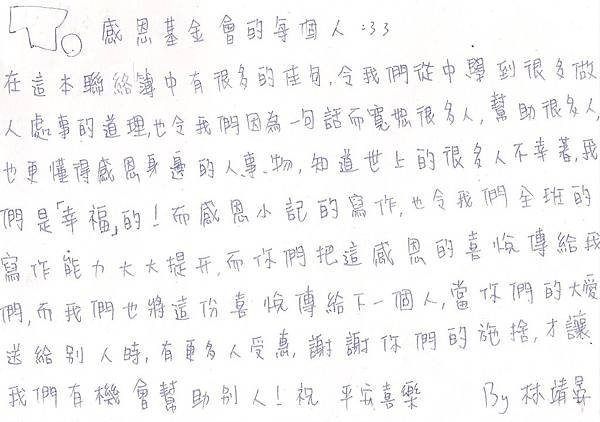 To. 感恩基金會的每個人 :33
在這本聯絡簿中有很多的佳句,令我們從中學到很多做
人處事的道理,也令我們因為一句話而寬恕很多人,幫助很多人,
也更懂得感恩身邊的人事物,知道世上的很多人不幸著,我
們是「幸福」的!而感恩小記的寫作,也令我們全班的
寫作能力大大提升,而你們把這感恩的喜悅傳給我
們,而我們也將這份喜悅傳給下一個人,當你們的大愛
送給別人時,有更多人受惠,謝謝你們的施捨,才讓
我們有機會幫助別人!祝 平安喜樂 By 林靖昇